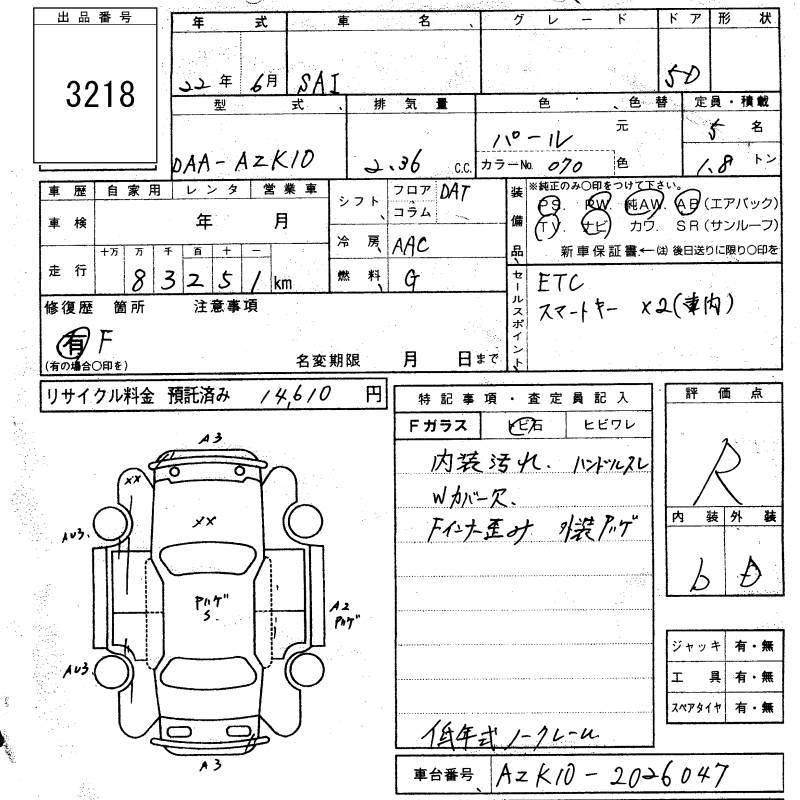 出品番号
3218
年 式 車 名 グレード ドア 形 状
22年 6月 SAI 5D
型 式 排気量 色 色替 定員・積載
DAA-AZK10 2.36 C.C. パール 元 5 名
カラーNo. 070 色 1.8 トン
車歴 自家用 レンタ 営業車 シフト フロア DAT コラム
車検 年 月 冷房 AAC
走行 十万 万 千 百 十 一
83251 km 燃料 G
装備品 ※純正のみ○印をつけて下さい。
PS. PW. 純AW. AB (エアバック)
TV. ナビ カワ. SR (サンルーフ)
新車保証書←(注) 後日送りに限り○印を
セールスポイント ETC
スマートキー ×2(車内)
修復歴 箇所 注意事項
有 F
(有の場合○印を) 名変期限 月 日まで
リサイクル料金 預託済み 14,610 円
特記事項・査定員記入
Fガラス トビ石 ヒビワレ
内装汚れ. ハンドルスレ
Wカバー欠.
Fインナー歪み 外装アゲ
低年式ノークレーム
評価点
R
内装 外装
b D
ジャッキ 有・無
工具 有・無
スペアタイヤ 有・無
A3
××
××
AU3.
S.
A2
AU3.
A3
車台番号 AZK10-2026047